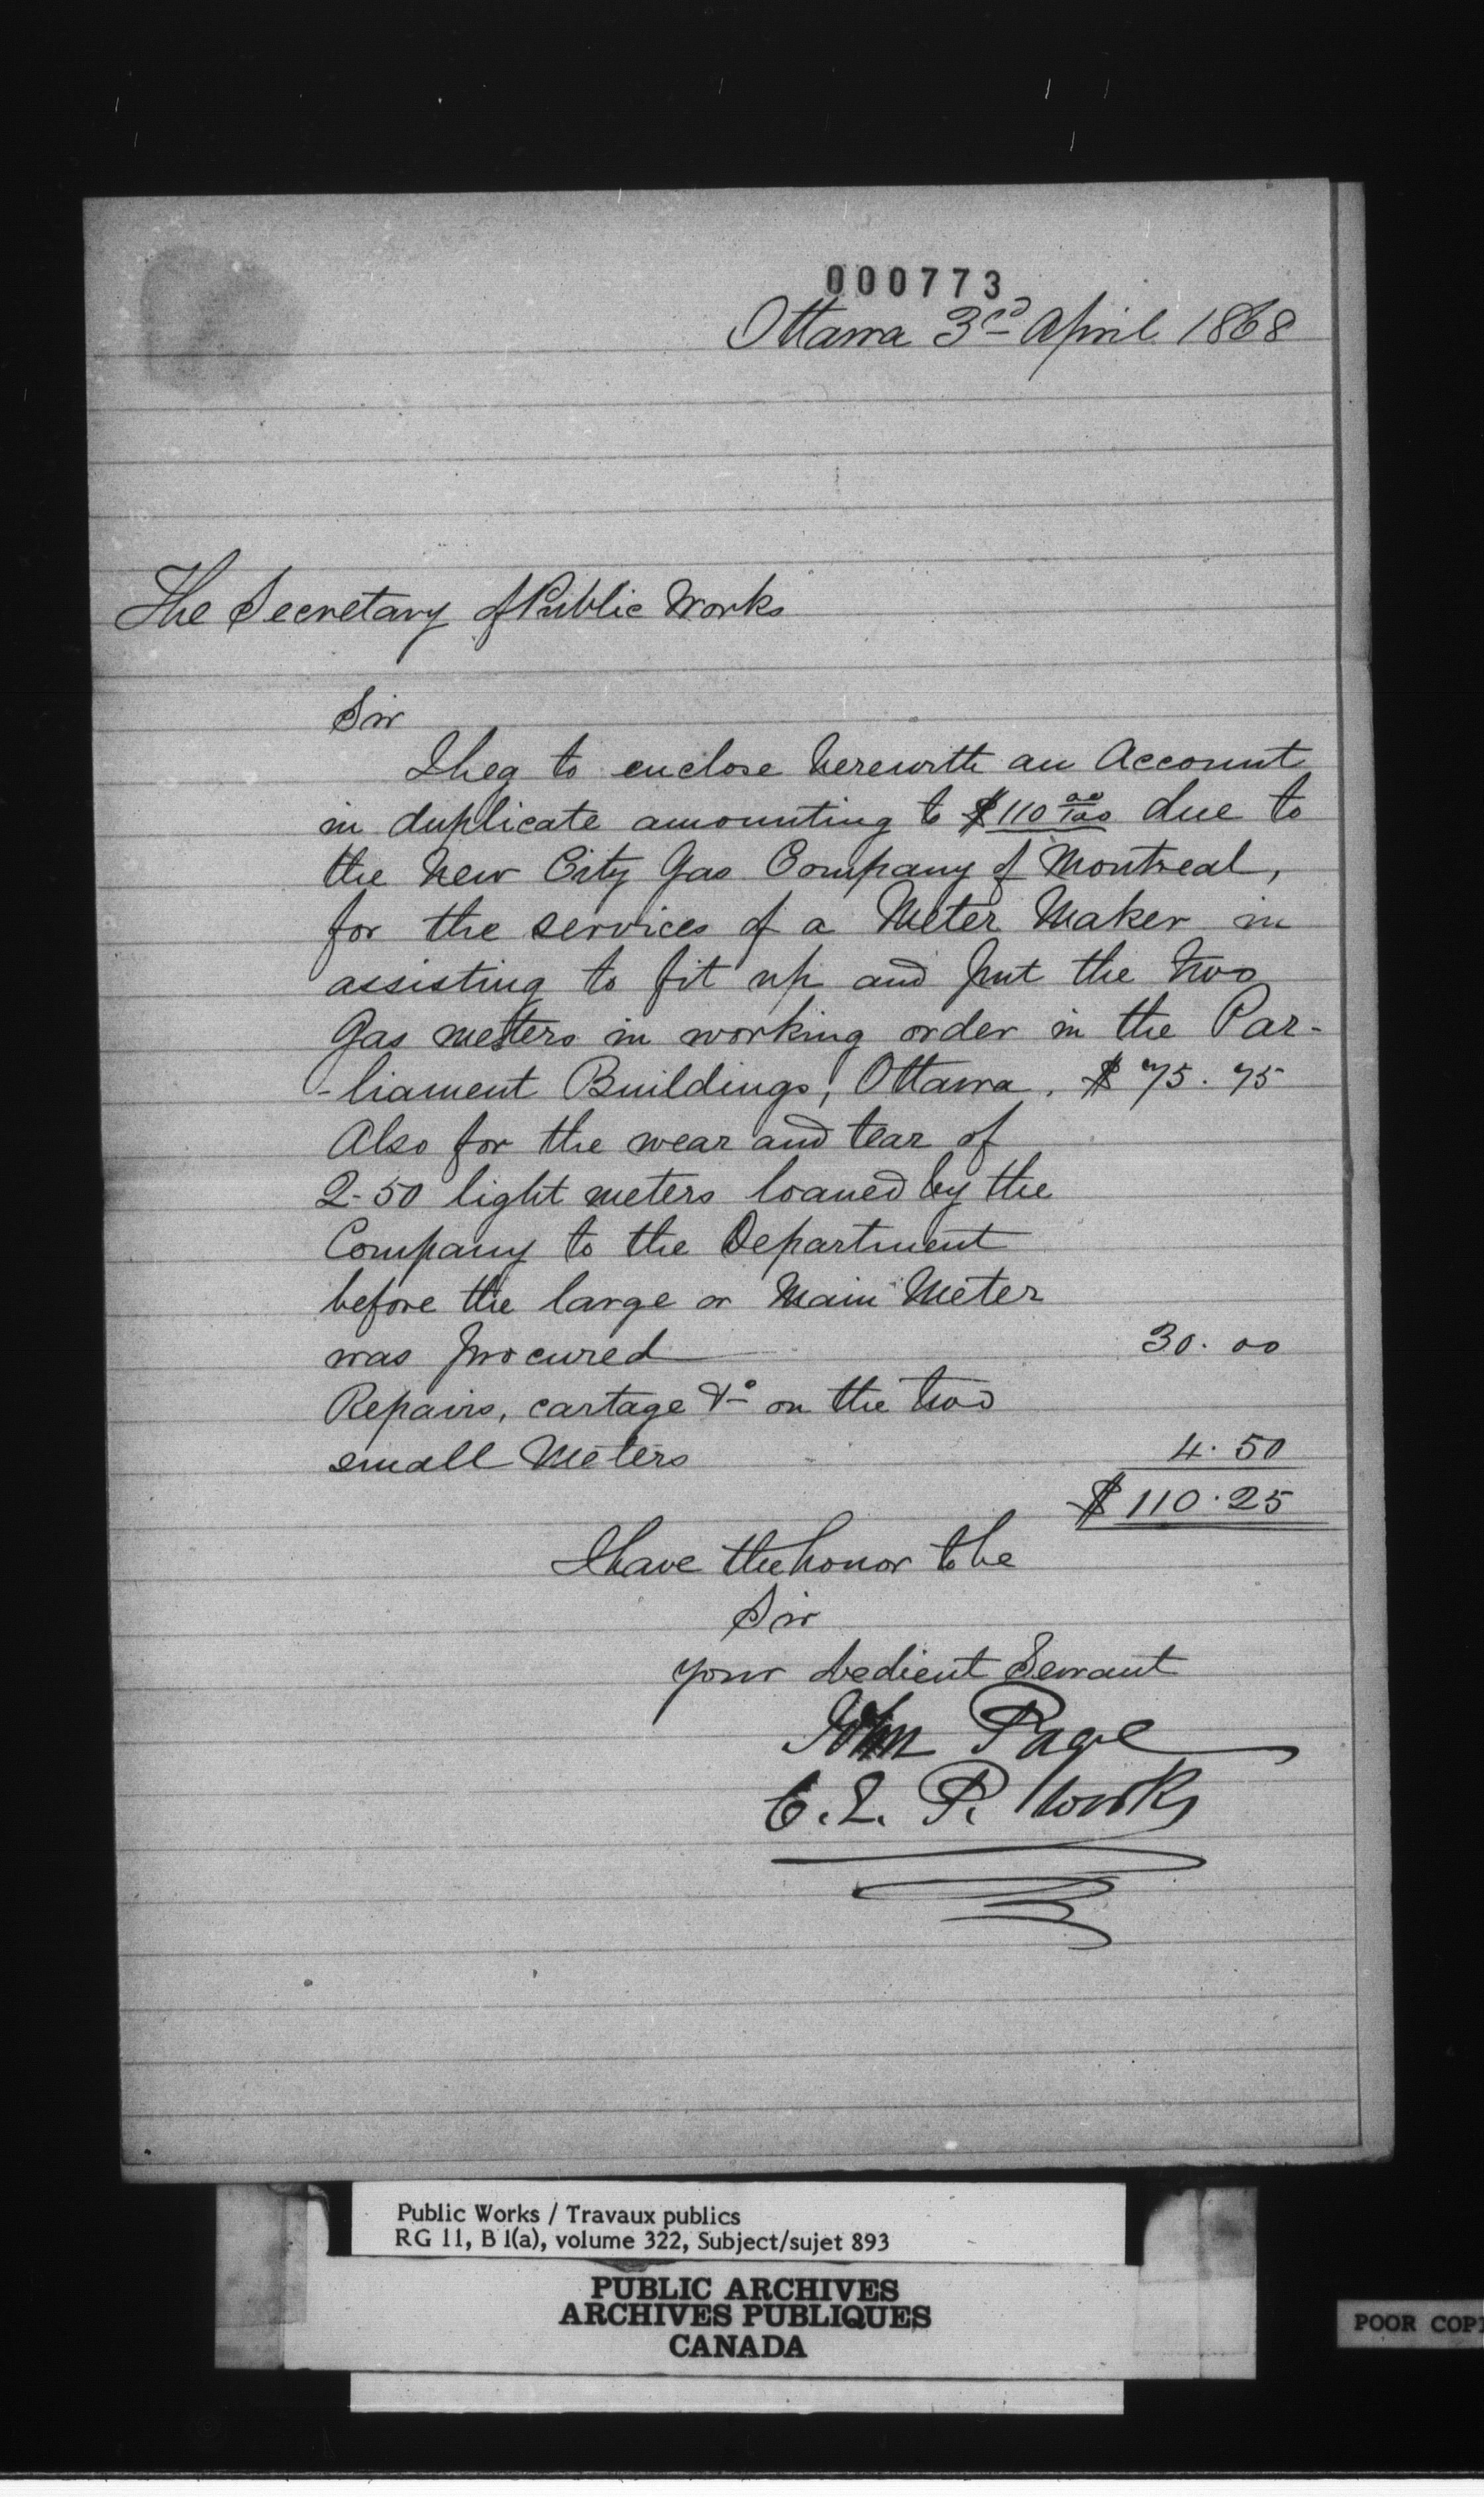 000773
Ottawa 3rd April 1868
The Secretary of Public Works
Sir
I beg to enclose herewith an Account
in duplicate amounting to $110 00/100 due to
the New City Gas Company of Montreal,
for the services of a Meter Maker in
assisting to fit up and put the two
Gas meters in working order in the Par-
-liament Buildings, Ottawa. $75.75
Also for the wear and tear of
2-50 light meters loaned by the
Company to the Department
before the large or Main Meter
was procured 30.00
Repairs, cartage &c on the two
small Meters 4.50
$110.25
I have the honor to be
Sir
your obedient Servant
John Page
C.E. P. Works
Public Works / Travaux publics
RG 11, B 1(a), volume 322, Subject/sujet 893
PUBLIC ARCHIVES
ARCHIVES PUBLIQUES
CANADA
POOR COP